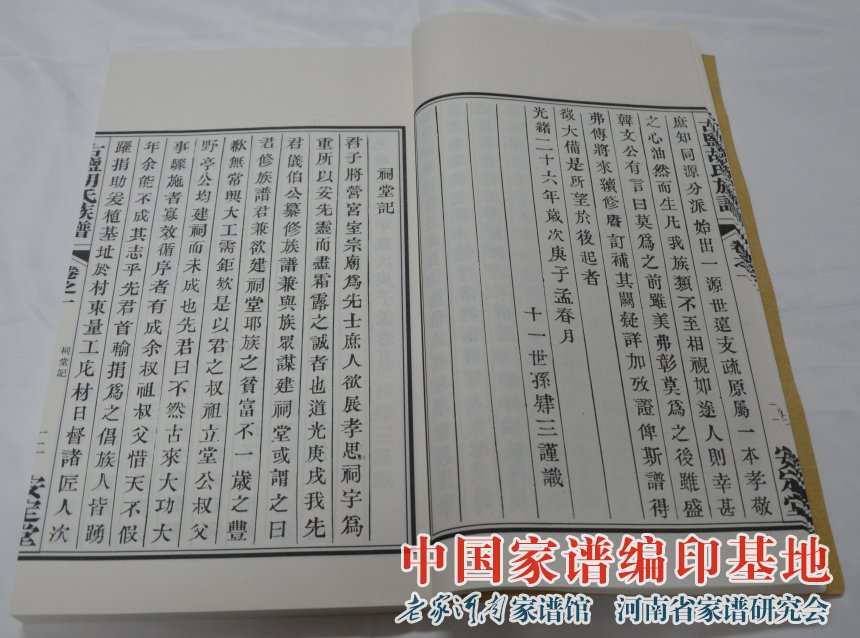 古盬胡氏族譜
卷之一
安定堂
庶知同源分派始出一源世遠支疏原屬一本孝敬
之心油然而生凡我族類不至相視如途人則幸甚
韓文公有言曰莫爲之前雖美弗彰莫爲之後雖盛
弗傳將來續修賡訂補其闕疑詳加攷證俾斯譜得
徵大備是所望於後起者
光緒二十六年歲次庚子孟春月
十一世孫肆三謹識
祠堂記
君子將營宮室宗廟爲先士庶人欲展孝思祠宇爲
重所以妥先靈而盡霜露之誠者也道光庚戌我先
君儀伯公纂修族譜兼與族眾謀建祠堂或謂之曰
君修族譜君兼欲建祠堂耶族之貧富不一歲之豐
歉無常興大工需鉅欵是以君之叔祖立堂公叔父
野亭公均建祠而未成也先君曰不然古來大功大
事驟施者寡效循序者有成余叔祖叔父惜天不假
年余能不成其志乎先君首輸捐爲之倡族人皆踴
躍捐助爰植基址於村東量工庀材日督諸匠人次
古盬胡氏族譜
卷之一
祠堂記
十二
安定堂
中国家谱编印基地
老家河南家谱馆 河南省家谱研究会